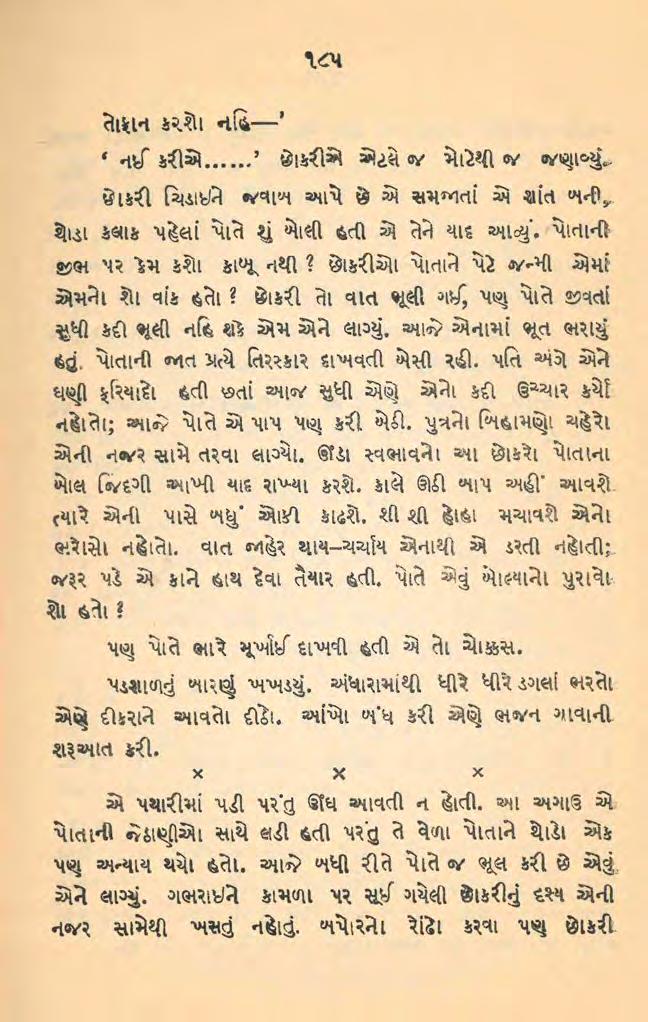 ૧૮૫
તોફાન કરશો નહિ—’
‘ નઈ કરીએ......’ છોકરીએ એટલે જ મોટેથી જ જણાવ્યું.
છોકરી ચિડાઈને જવાબ આપે છે એ સમજાતાં એ શાંત બની.
થોડા કલાક પહેલાં પોતે શું બોલી હતી એ તેને યાદ આવ્યું. પોતાની
જીભ પર કેમ કશો કાબૂ નથી ? છોકરીઓ પોતાને પેટે જન્મી એમાં
એમનો શો વાંક હતો ? છોકરી તો વાત ભૂલી ગઈ, પણ પોતે જીવતાં
સુધી કદી ભૂલી નહિ શકે એમ એને લાગ્યું. આજે એનામાં ભૂત ભરાયું
હતું. પોતાની જાત પ્રત્યે તિરસ્કાર દાખવતી બેસી રહી. પતિ અંગે એને
ઘણી ફરિયાદો હતી છતાં આજ સુધી એણે એનો કદી ઉચ્ચાર કર્યો
નહોતો; આજે પોતે એ પાપ પણ કરી બેઠી. પુત્રનો બિહામણો ચહેરો
એની નજર સામે તરવા લાગ્યો. ઊંડા સ્વભાવનો આ છોકરો પોતાના
બોલ જિંદગી આખી યાદ રાખ્યા કરશે. કાલે ઊઠી બાપ અહીં આવશે
ત્યારે એની પાસે બધું ઓકી કાઢશે. શી શી હોહા મચાવશે એનો
ભરોસો નહોતો. વાત જાહેર થાય–ચર્ચાય એનાથી એ ડરતી નહોતી;
જરૂર પડે એ કાને હાથ દેવા તૈયાર હતી. પોતે એવું બોલ્યાનો પુરાવો
શો હતો ?
પણ પોતે ભારે મૂર્ખાઈ દાખવી હતી એ તો ચોક્કસ.
પડશાળનું બારણું ખખડયું. અંધારામાંથી ધીરે ધીરે ડગલાં ભરતો
એણે દીકરાને આવતો દીઠો. આંખો બંધ કરી એણે ભજન ગાવાની
શરૂઆત કરી.
× × ×
એ પથારીમાં પડી પરંતુ ઊંઘ આવતી ન હોતી. આ અગાઉ એ
પોતાની જેઠાણીઓ સાથે લડી હતી પરંતુ તે વેળા પોતાને થોડો એક
પણ અન્યાય થયો હતો. આજે બધી રીતે પોતે જ ભૂલ કરી છે એવું
એને લાગ્યું. ગભરાઈને કામળા પર સૂઈ ગયેલી છોકરીનું દશ્ય એની
નજર સામેથી ખસતું નહોતું. બપોરનો રોંઢો કરવા પણ છોકરી